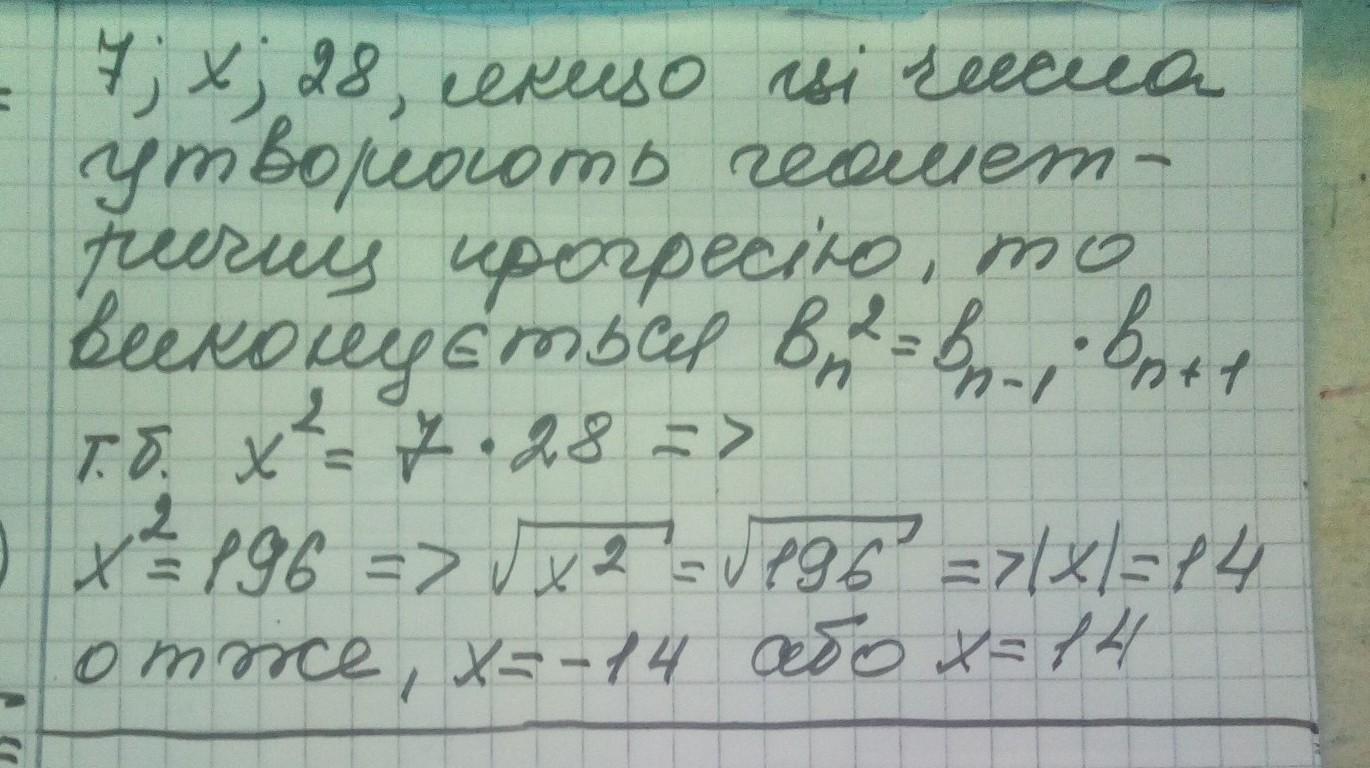 7; x; 28, якщо ці числа
утворюють геомет-
ричну прогресію, то
виконується bₙ² = bₙ₋₁ · bₙ₊₁
т.б. x² = 7 · 28 =>
x² = 196 => √x² = √196 => |x| = 14
отже, x = -14 або x = 14